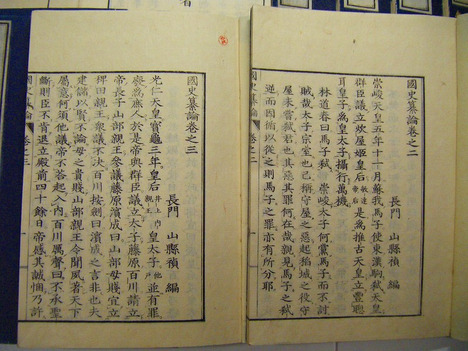 國史纂論卷之二
長門 山縣禎 編
崇峻天皇五年十一月蘇我馬子使東漢駒弑天皇
群臣議立炊屋姬皇后敏達皇后是為推古天皇立豐聰
耳皇子為皇太子攝行萬機
林道春曰馬子弑 崇峻太子何黨馬子而不討
賊哉太子宗室也已稱守屋之惡起稻城之役守
屋未嘗弑君也其惡其罪何在哉親見馬子之弑
逆而因循以從之則馬子之罪亦有所分耶
國史纂論 卷之二
國史纂論卷之三
長門 山縣禎 編
光仁天皇寶龜三年皇后井上內親王皇太子他戶並有罪
廢為庶人於是帝與群臣議立太子藤原百川請立
帝長子山部親王參議藤原濱成曰山部母賤宜立
稗田親王衆議不決百川按劍曰濱成之言非也夫
建儲以賢不論母之貴賤山部親王令聞夙著天下
屬意何須他議帝不答起入內百川厲聲曰不承聖
斷則臣不肯退立殿前四十餘日帝感其誠悃乃許
國史纂論 卷之三